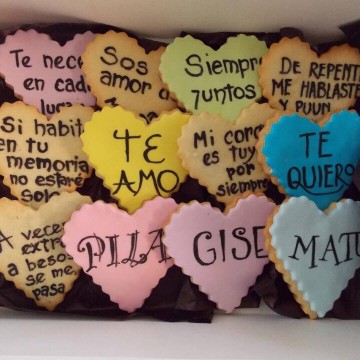 Te
en cad
Sos
amor d
Siempre
7untos
DE REPENTE
ME HABLASTE
Y PUUN
Si habit
en tu
memoria
no estaré
solo
TE
AMO
Mi cora
es tuy
por
siempre
TE
QUIERO
A veces
extra
a besos
se me
pasa
PILA
GISE
MATÍ